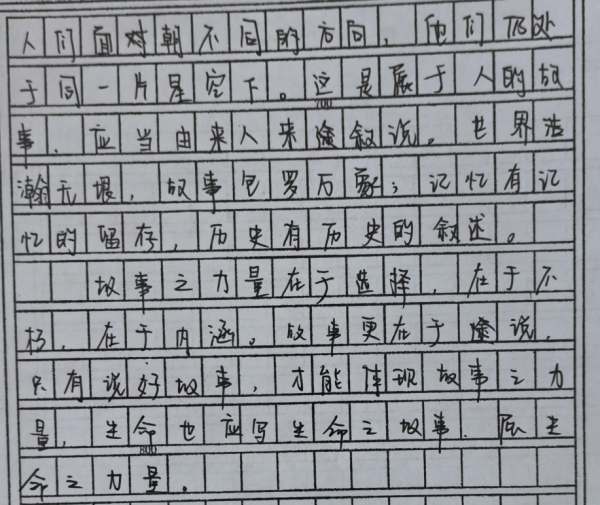 人们面对朝不同的方向，他们仍处
于同一片星空下。这是属于人的故
700
事，应当由来人来途叙说。世界浩
瀚无垠，故事包罗万象；记忆有记
忆的留存，历史有历史的叙述。
故事之力量在于选择，在于不
朽，在于内涵。故事更在于途说，
只有说好故事，才能体现故事之力
量，生命也应写生命之故事，展生
800
命之力量。